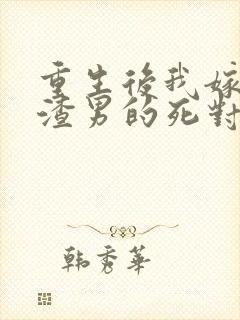 重生後我嫁
渣男的死對
韩秀華